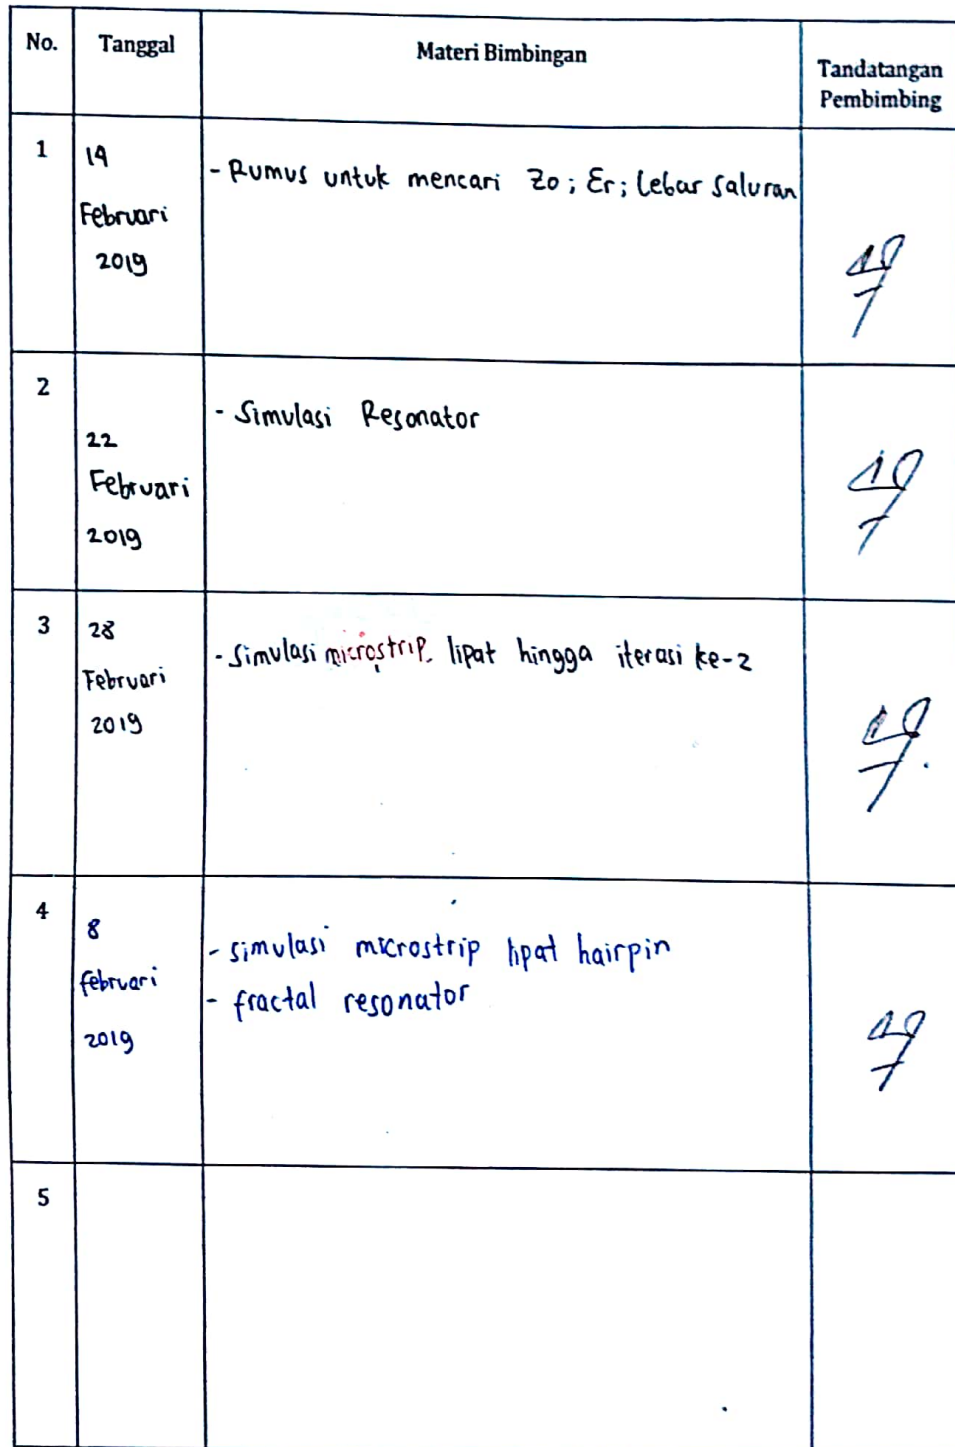 No. Tanggal Materi Bimbingan Tandatangan
Pembimbing
1 19 - Rumus untuk mencari Zo; Er; Lebar Saluran
Februari
2019
2 - Simulasi Resonator
22
Februari
2019
3 28 - Simulasi microstrip lipat hingga iterasi ke-2
Februari
2019
4 8 - simulasi microstrip lipat hairpin
februari - fractal resonator
2019
5